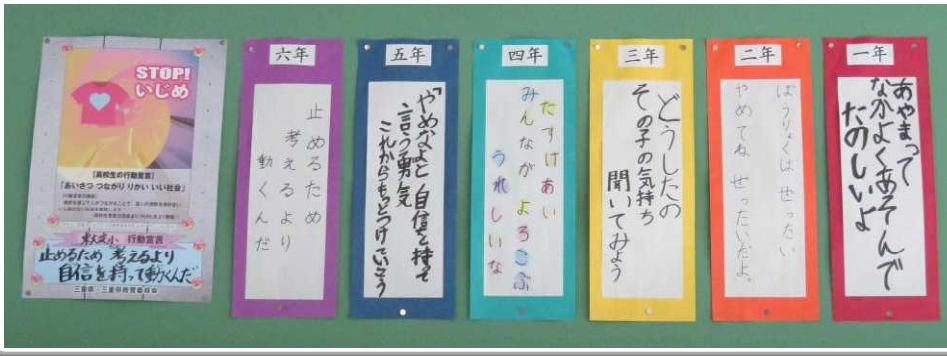 STOP!
いじめ
【高校生の行動宣言】
「あいさつ つながり りかい いい社会」
東大淀小 行動宣言
止めるため 考えるより
自信を持って動くんだ
三重県・三重県教育委員会
六年
止めるため
考えるより
動くんだ
五年
「やめなよ」と自信を持って
言う勇気
これからもっとつけていこう
四年
たすけあい
みんなが よろこぶ
うれしいな
三年
どうしたの
その子の気持ち
聞いてみよう
二年
ぼうりょくは ぜったい
やめてね ぜったいだよ。
一年
あやまって
なかよくあそんで
たのしいよ